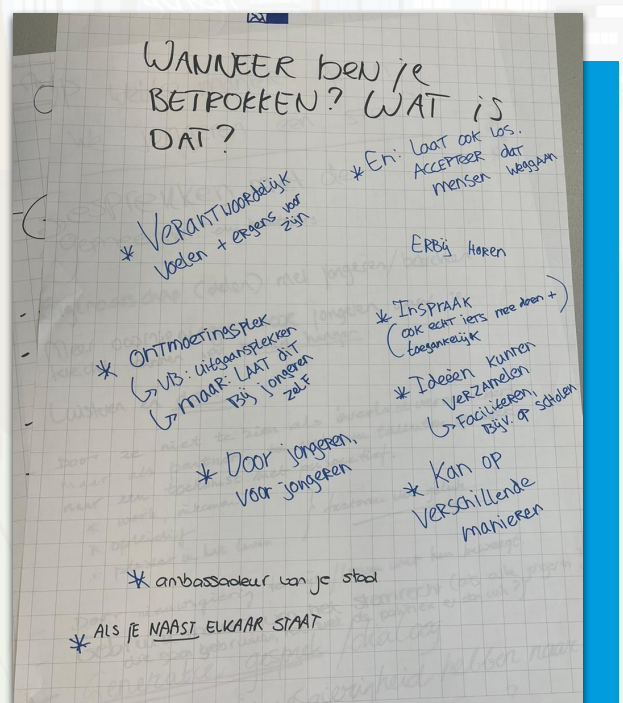 WANNEER ben je
BETROKKEN? WAT is
DAT?
* En: LAAT OOK LOS.
ACCEPTEER dAT
mensen weggAAn
* VERANTWOORdelijk
voelen + ergens voor
zijn
ERBij HOREN
* ONTMOETINGSPLEK
↳ VB: uitgaansplekken
↳ MAAR: LAAT diT
Bij jongeren
zelf
* InSPRAAK
(OOK ECHT iETS mee doen +
toegankelijk)
* Ideeën kunnen
VERZAMELEN
↳ Faciliteren,
Bijv. op scholen
* Door jongeren,
voor jongeren
* KAn OP
VERSCHILLENDE
mAnieREn
* ambassadeur van je stad
* ALS jE NAAST ELKAAR STAAT